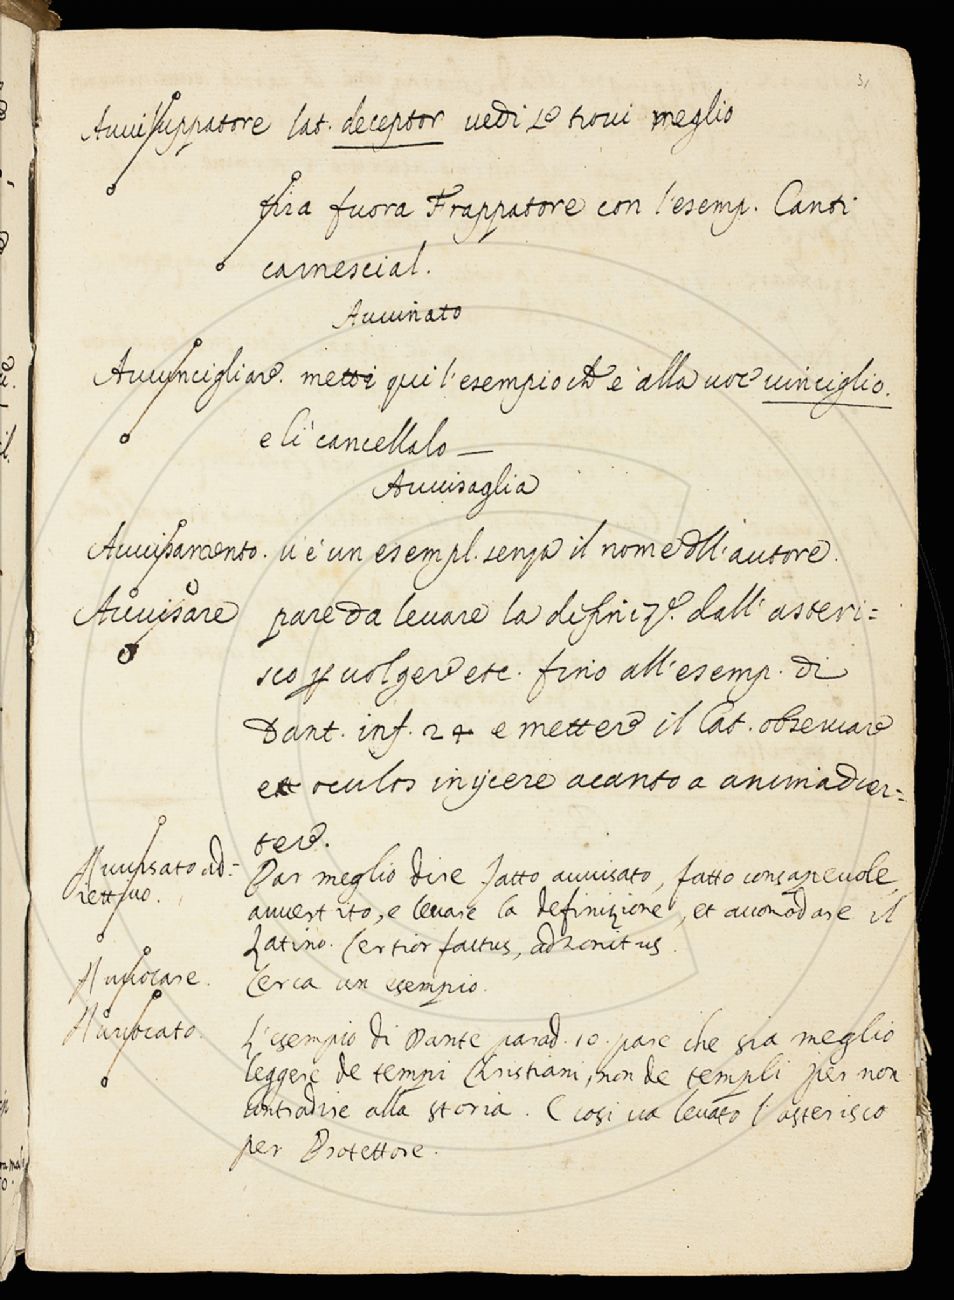 31
Auuiluppatore lat. deceptor uedi se troui meglio
tira fuora Frappatore con l'esemp. Canti
carnescial.
Auuinato
Auuincigliare. metti qui l'esempio che è alla uoce uinciglio.
e lì cancellalo —
Auuisaglia
Auuisamento. u'è un esempl. senza il nome dell'autore.
Auuisare pare da leuare la difiniz.e dall'asteri=
sco p uolgere etc. fino all'esemp. di
Dant. inf. 24 e mettere il lat. obseruare
et oculos iniјcere acanto a animaduer=
tere.
Auuisato ad= Par meglio dire fatto auuisato, fatto consapeuole,
iettiuo. auuertito, e leuare la definizione, et accomodare il
Latino. Certior factus, admonitus.
Auuocare. Cerca un esempio.
Auuocato. L'esempio di Dante parad. 10. pare che sia meglio
leggere de tempi Christiani, non de templi per non
contradire alla storia. E così ua leuato l'asterisco
per Protettore.